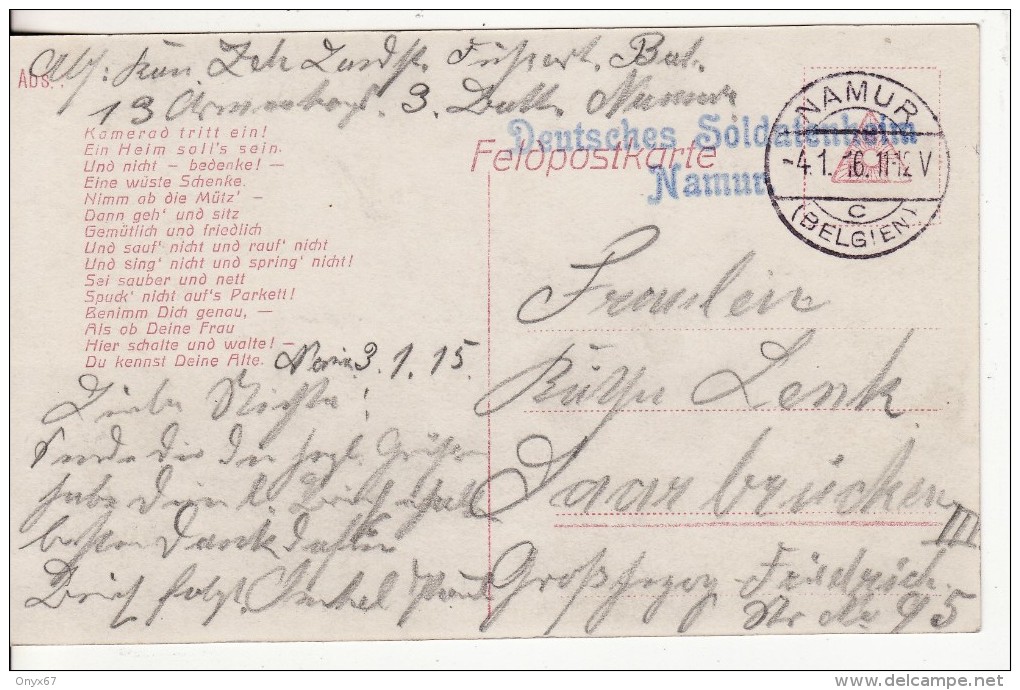 Abs.:
Namur
Kamerad tritt ein!
Ein Heim soll's sein.
Und nicht – bedenke! –
Eine wüste Schenke.
Nimm ab die Mütz' –
Dann geh' und sitz
Gemütlich und friedlich
Und sauf' nicht und rauf' nicht
Und sing' nicht und spring' nicht!
Sei sauber und nett
Spuck' nicht auf's Parkett!
Benimm Dich genau, –
Als ob Deine Frau
Hier schalte und walte! –
Du kennst Deine Alte.
3.1.15.
Liebe Nichte!
Sende dir die herzl. Grüße
habe dein l. Brief erhalt
besten Dank dafür
Brief folgt. Onkel Paul
Feldpostkarte
Deutsches Soldatenheim
Namur
NAMUR
-4.1.16.11-12V
C
(BELGIEN)
Fräulein
Lenk
Saarbrücken
III
Großherzog Friedrich
Nr 95
Onyx67
www.delcampe.net